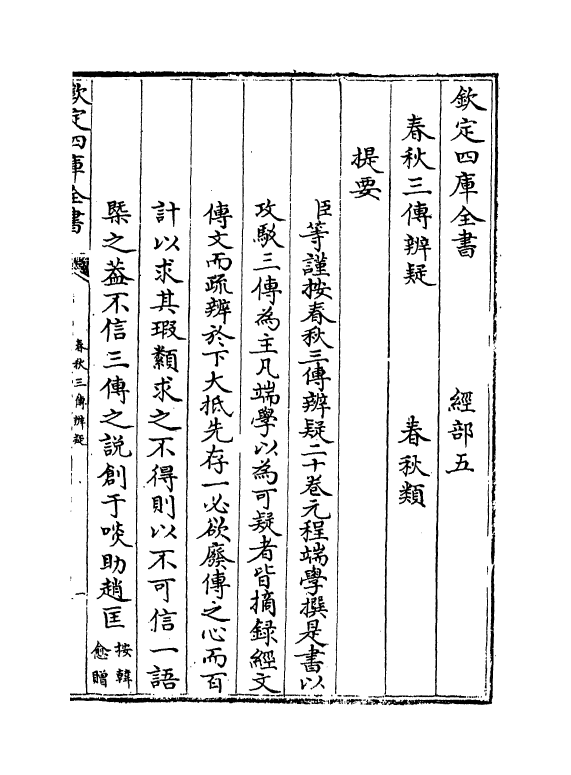 欽定四庫全書　經部五
春秋三傳辨疑　春秋類
提要
臣等謹按春秋三傳辨疑二十巻元程端學撰是書以
攻駁三傳為主凡端學以為可疑者皆摘録經文
傳文而疏辨於下大抵先存一必欲廢傳之心而百
計以求其瑕纇求之不得則以不可信一語
槩之葢不信三傳之説創于啖助趙匡
按韓
愈贈
欽定四庫全書
春秋三傳辨疑
一